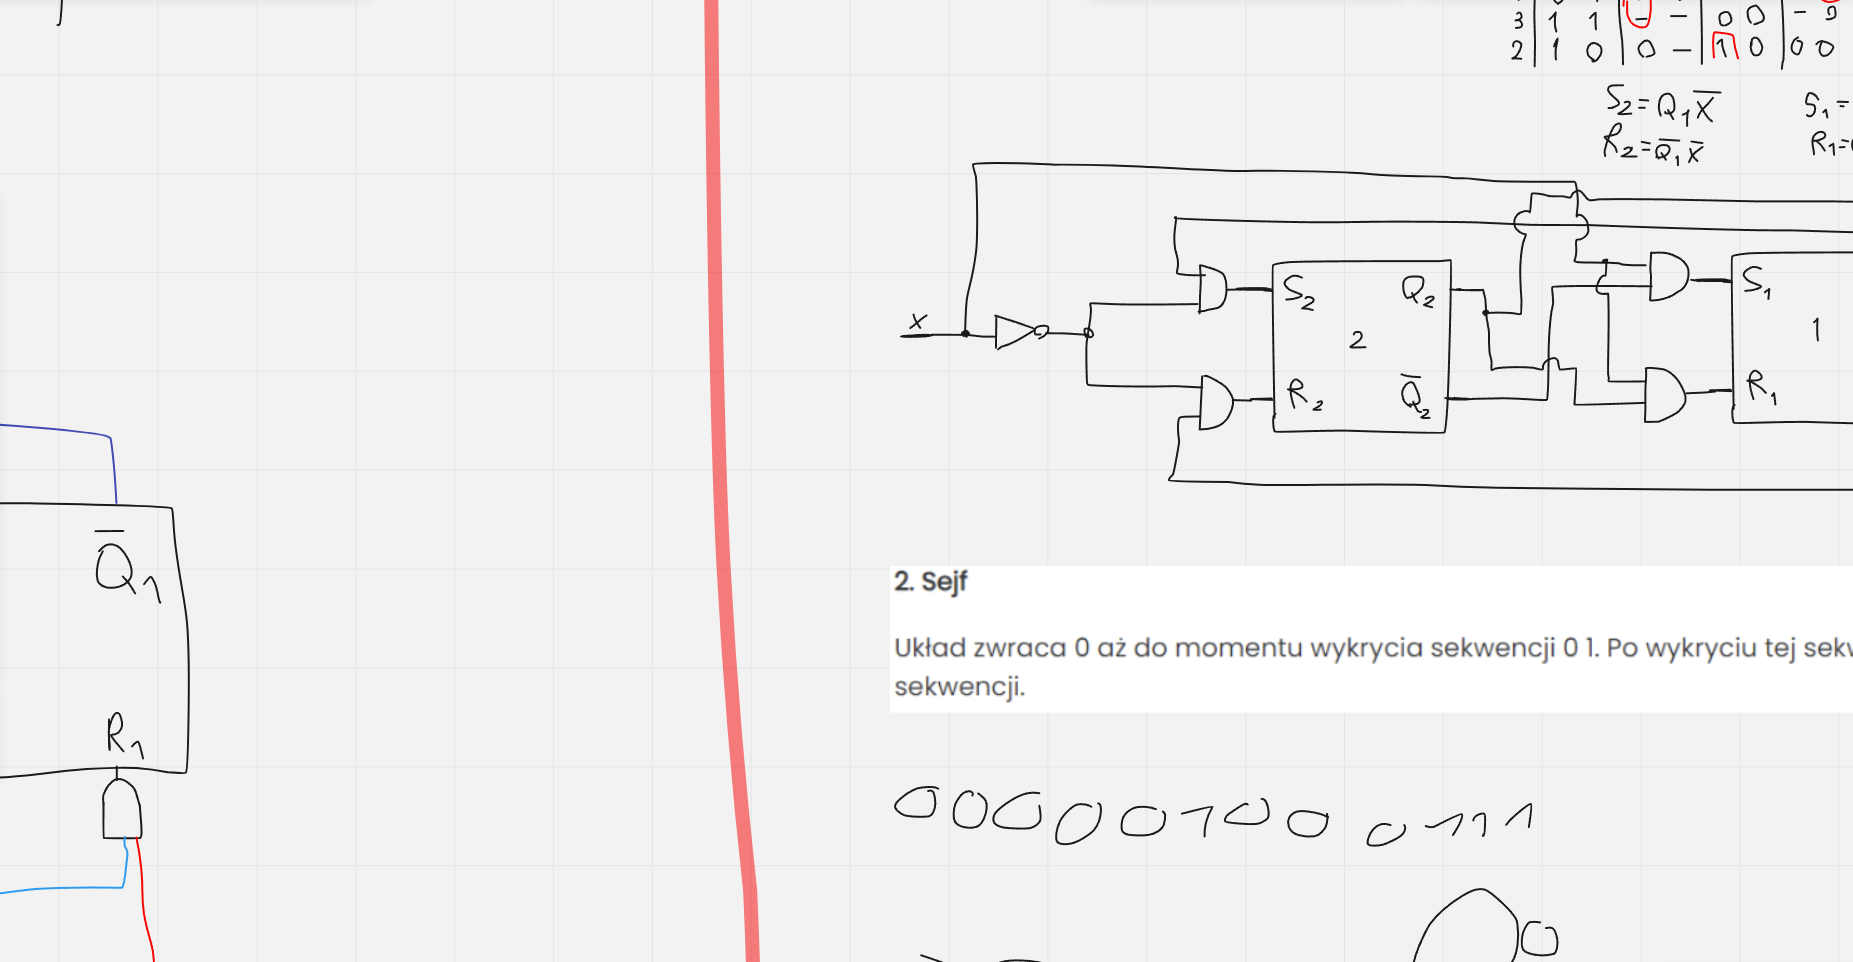 3 | 1 1 | - - | 0 0 | - 0
2 | 1 0 | 0 - | 1 0 | 0 0
S₂=Q₁X̅ S₁=
R₂=Q̅₁X̅ R₁=
x
S₂ Q₂
2
R₂ Q̅₂
S₁
1
R₁
Q̅₁
R₁
2. Sejf
Układ zwraca 0 aż do momentu wykrycia sekwencji 0 1. Po wykryciu tej sekw
sekwencji.
000001000111
0